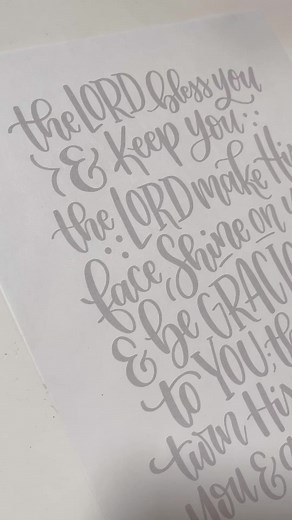 the LORD bless you
& Keep you
the LORD make
face Shine on
& be
to YOU;
turn His
you &